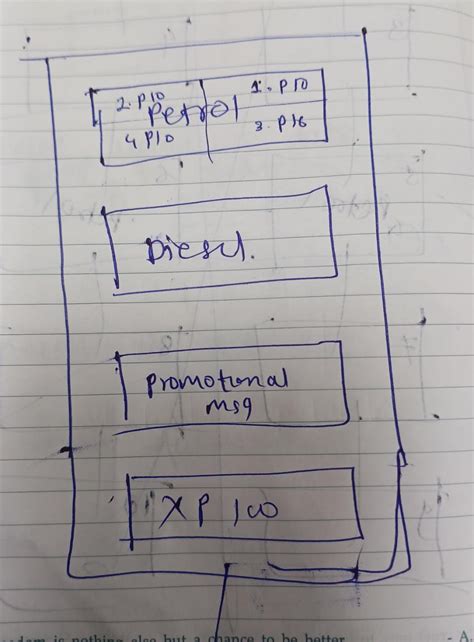 2. P10
1. P10
Petrol
4 P10
3. P16
Diesel.
Promotional
msg
XP 100
is nothing else but a chance to be better
- A